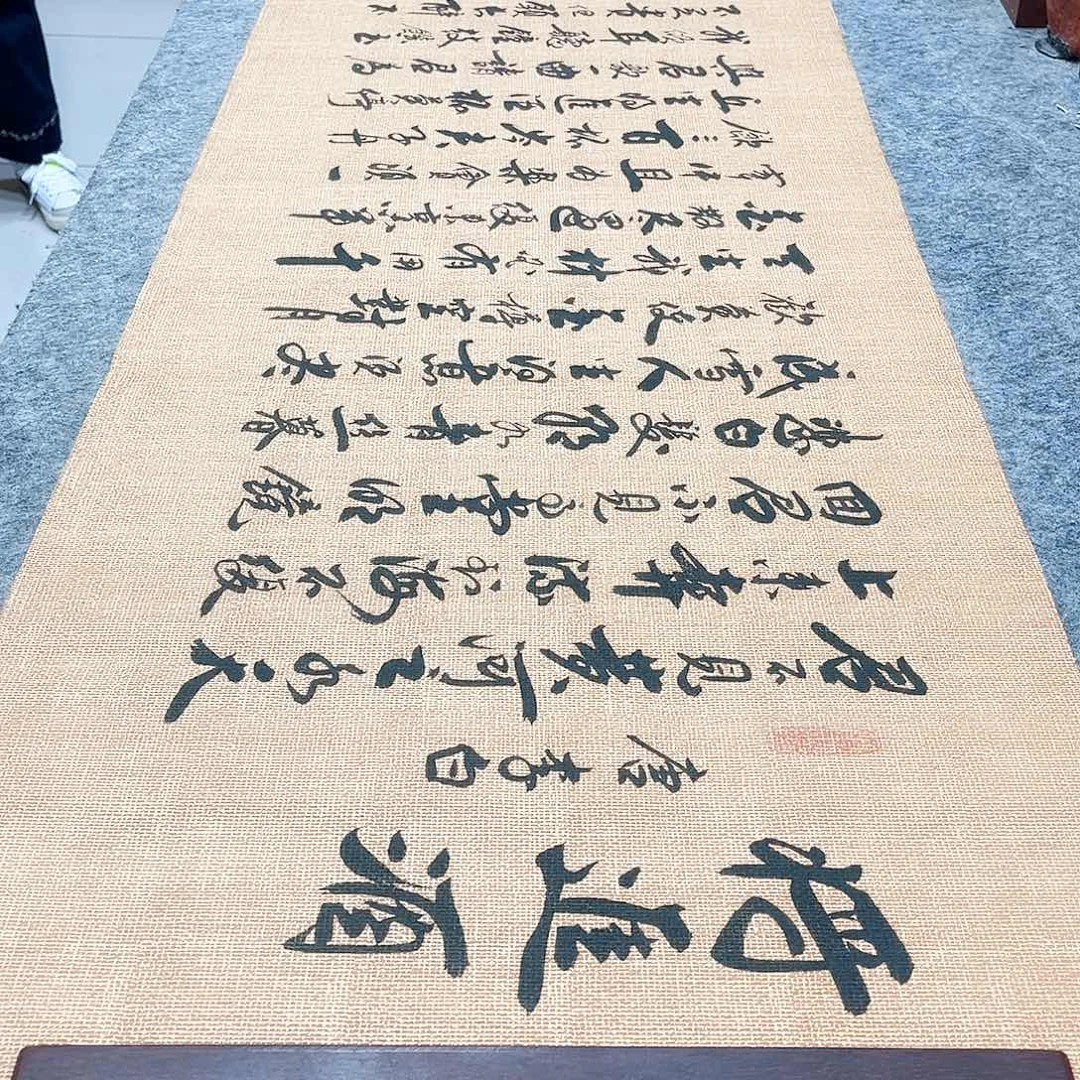 将進酒
唐李白
君不見黄河之水天
上来奔流到海不復
回君不見高堂明鏡
悲白髮朝如青絲暮
成雪人生得意須尽
歡莫使金樽空對月
天生我材必有用千
金散尽還復来烹羊
宰牛且為樂會須一
飲三百杯岑夫子丹
丘生将進酒杯莫停
與君歌一曲請君為
我傾耳聽鐘鼓饌玉
不足貴但願長醉不